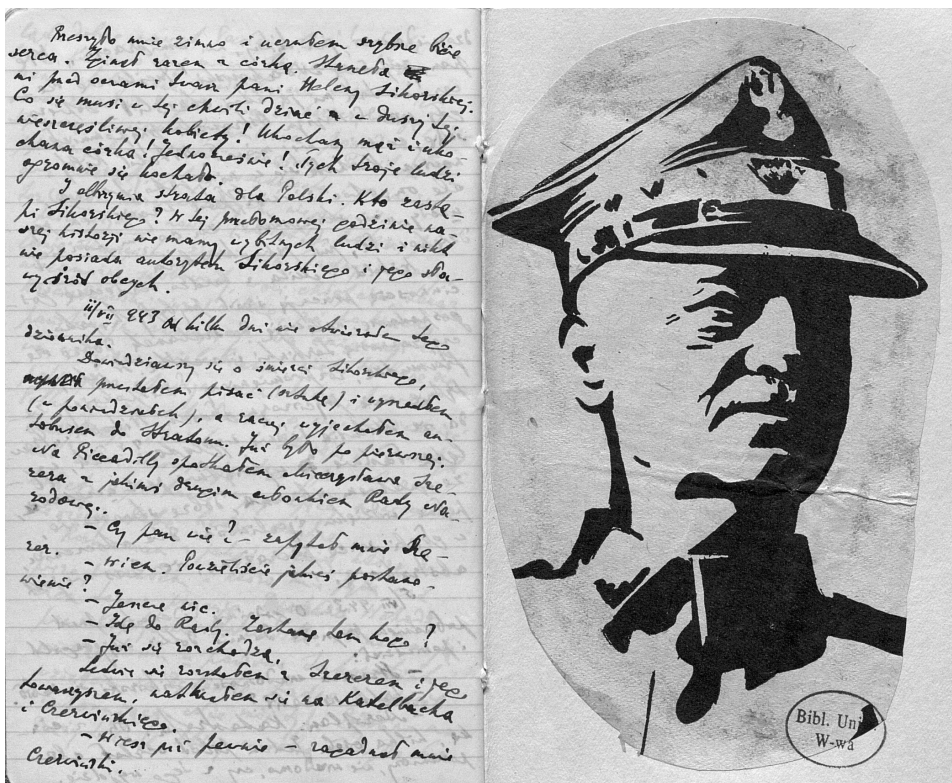 Przeszyło mnie zimno i uczułem szybsze bicie
serca. Zginął razem z córką. Stanęła
mi przed oczami twarz pani Heleny Sikorskiej.
Co się musi w tej chwili dziać w duszy tej
nieszczęśliwej kobiety! Ukochany mąż i uko-
chana córka! Jednocześnie! Tych troje ludzi
ogromnie się kochało.
I olbrzymia strata dla Polski. Kto zastą-
pi Sikorskiego? W tej przełomowej godzinie na-
szej historji nie mamy wybitnych ludzi i nikt
nie posiada autorytetu Sikorskiego i jego sła-
wy wśród obcych.
11/VII 943 Od kilku dni nie otwierałem tego
dziennika.
Dowiedziawszy się o śmierci Sikorskiego,
przestałem pisać (sztukę) i wyszedłem
(w poniedziałek), a raczej wyjechałem au-
tobusem do Stratonu. Już było po pierwszej.
Na Piccadilly spotkałem Mieczysława Sze-
rera z jakimś drugim członkiem Rady Na-
rodowej.
– Czy pan wie? – zapytał mnie Sze-
rer.
– Wiem. Powzięliście jakieś postano-
wienie?
– Jeszcze nic.
– Idę do Rady. Zastanę tam kogo?
– Już się rozchodzą.
Ledwie się rozstałem z Szererem i jego
towarzyszem, natknąłem się na Kadelbacha
i Czerwińskiego.
– Wiesz już pewnie – zagadnął mnie
Czerwiński.
Bibl. Uni
W-wa